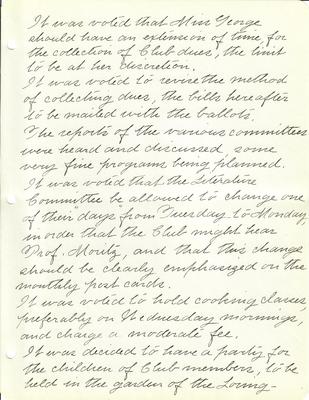 It was voted that Miss George
should have an extension of time for
the collection of Club dues, the limit
to be at her discretion.
It was voted to revise the method
of collecting dues, the bills hereafter
to be mailed with the ballots.
The reports of the various committees
were heard and discussed, some
very fine programs being planned.
It was voted that the Literature
Committee be allowed to change one
of their days from Tuesday to Monday,
in order that the Club might hear
Prof. Moritz, and that this change
should be clearly emphasized on the
monthly post cards.
It was voted to hold cooking classes,
preferably on Wednesday mornings,
and charge a moderate fee.
It was decided to have a party for
the children of Club members, to be
held in the garden of the Loring-